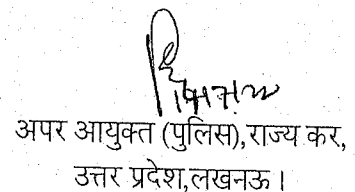 अपर आयुक्त (पुलिस),राज्य कर,
उत्तर प्रदेश,लखनऊ।